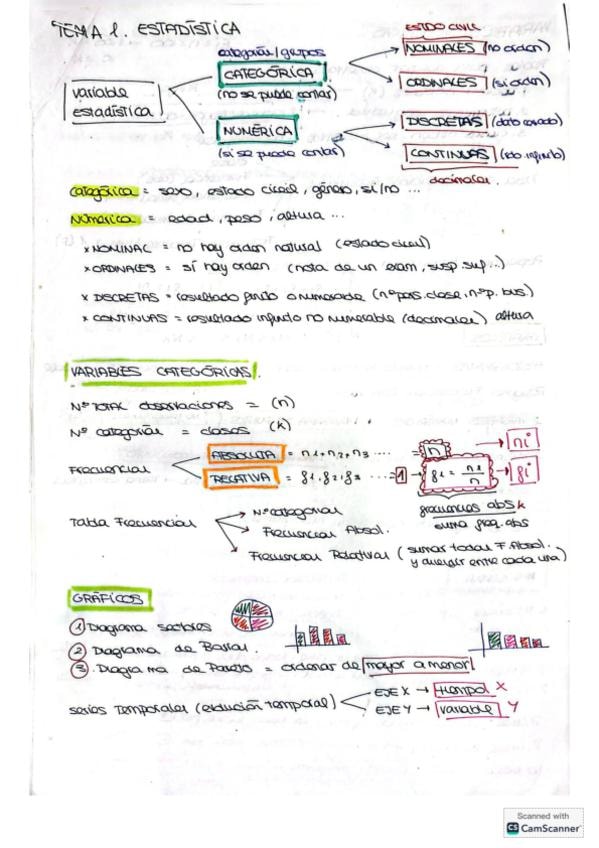 TEMA 1. ESTADÍSTICA
ESTADO CIVIL
categorías/grupos
NOMINALES (no orden)
CATEGÓRICA
variable estadística
(no se puede contar)
ORDINALES (sí orden)
NUMÉRICA
DISCRETAS
(si se puede contar)
CONTINUAS
decimales.
categórica = sexo, estado civil, género, sí/no ...
Númerica = edad, peso, altura ...
x NOMINAL = no hay orden natural (estado civil)
x ORDINALES = sí hay orden (nota de un exam, susp. suf...)
x DISCRETAS = resultado finito o numerable (nºpers. clase, nºp. bus.)
x CONTINUAS = resultado infinito no numerable (decimales) altura
VARIABLES CATEGÓRICAS.
Nº TOTAL observaciones = (n)
Nº categorías = clases (k)
Frecuencias
ABSOLUTA = n1, n2, n3 .... = n → ni
RELATIVA = f1, f2, f3 ... = 1 → f1 = n1/n → fi
frecuencias abs k
suma freq. abs
Tabla Frecuencias
Nº categorías
Frecuencias Absol.
Frecuencias Relativas (sumar todas F. Absol.
y dividir entre cada una)
GRÁFICOS
① Diagrama sectores
② Diagrama de Barras.
③ Diagrama de Pareto = ordenar de mayor a menor
series temporales (evolución temporal)
EJE X → tiempo X
EJE Y → variable Y
Scanned with
CS CamScanner